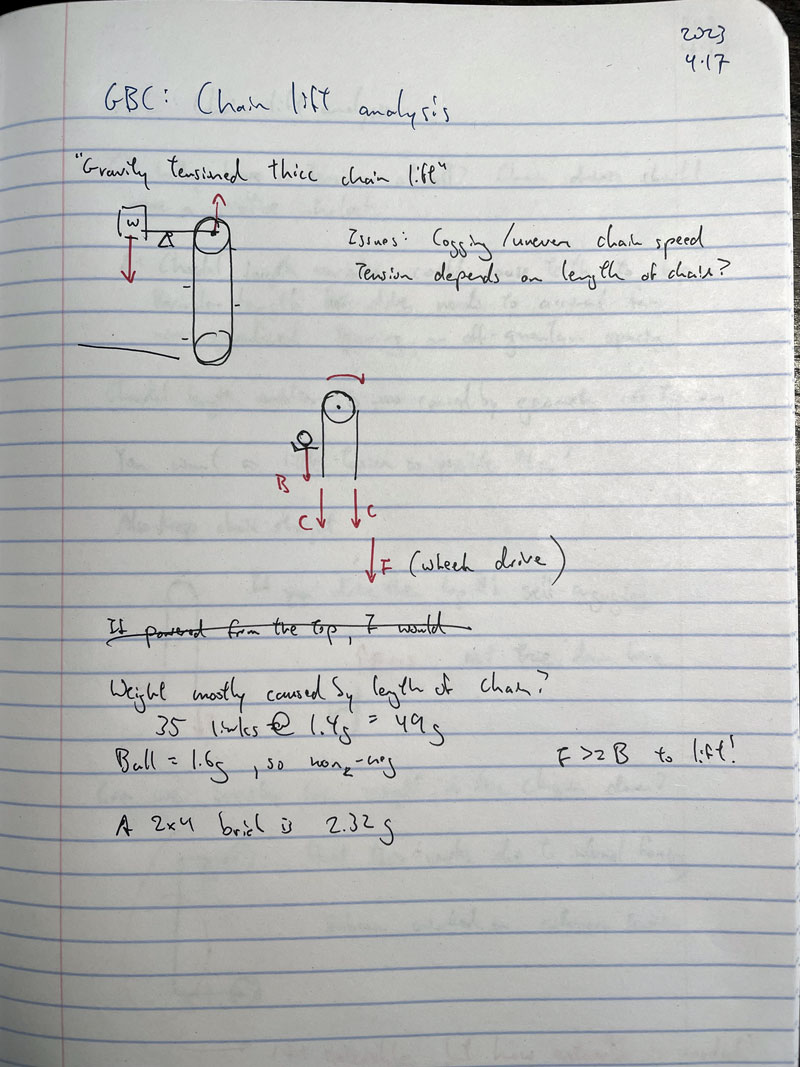 2023
4.17
GBC: Chain lift analysis
"Gravity tensioned thicc chain lift"
W
Issues: Cogging/uneven chain speed
Tension depends on length of chain?
B
C C
F (wheel drive)
If powered from the top, F would
Weight mostly caused by length of chain?
35 links @ 1.4g = 49g
Ball = 1.6g, so non-neg
F > 2B to lift!
A 2x4 brick is 2.32g